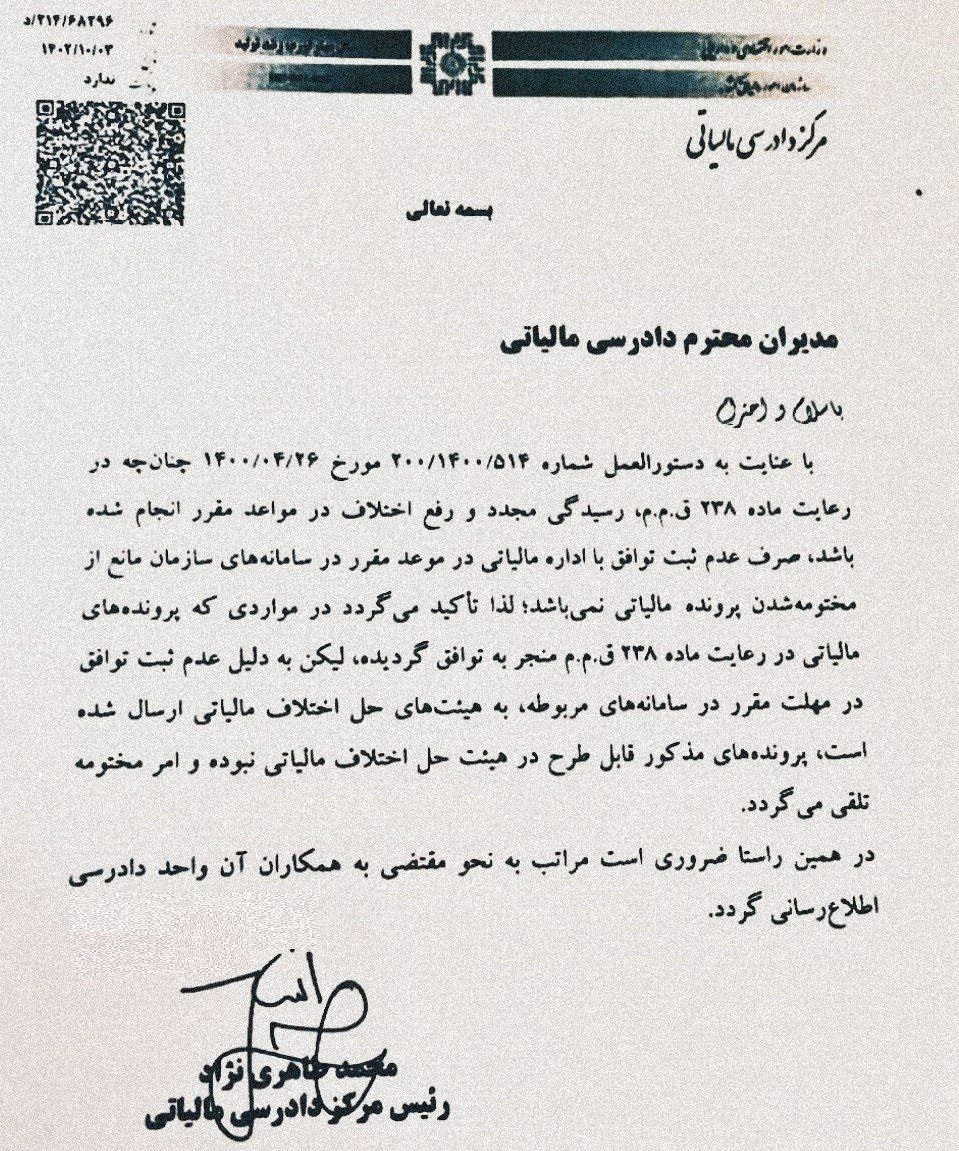 د/۲۱۴/۶۸۲۹۶
۱۴۰۲/۱۰/۰۳
ندارد
وزارت امور اقتصادی و دارایی
سازمان امور مالیاتی کشور
مرکز دادرسی مالیاتی
بسمه تعالی
مدیران محترم دادرسی مالیاتی
باسلام و احترام
با عنایت به دستورالعمل شماره ۲۰۰/۱۴۰۰/۵۱۴ مورخ ۱۴۰۰/۰۴/۲۶ چنان‌چه در
رعایت ماده ۲۳۸ ق.م.م، رسیدگی مجدد و رفع اختلاف در مواعد مقرر انجام شده
باشد، صرف عدم ثبت توافق با اداره مالیاتی در موعد مقرر در سامانه‌های سازمان مانع از
مختومه‌شدن پرونده مالیاتی نمی‌باشد؛ لذا تأکید می‌گردد در مواردی که پرونده‌های
مالیاتی در رعایت ماده ۲۳۸ ق.م.م منجر به توافق گردیده، لیکن به دلیل عدم ثبت توافق
در مهلت مقرر در سامانه‌های مربوطه، به هیئت‌های حل اختلاف مالیاتی ارسال شده
است، پرونده‌های مذکور قابل طرح در هیئت حل اختلاف مالیاتی نبوده و امر مختومه
تلقی می‌گردد.
در همین راستا ضروری است مراتب به نحو مقتضی به همکاران آن واحد دادرسی
اطلاع‌رسانی گردد.
محمد طاهری نژاد
رئیس مرکز دادرسی مالیاتی